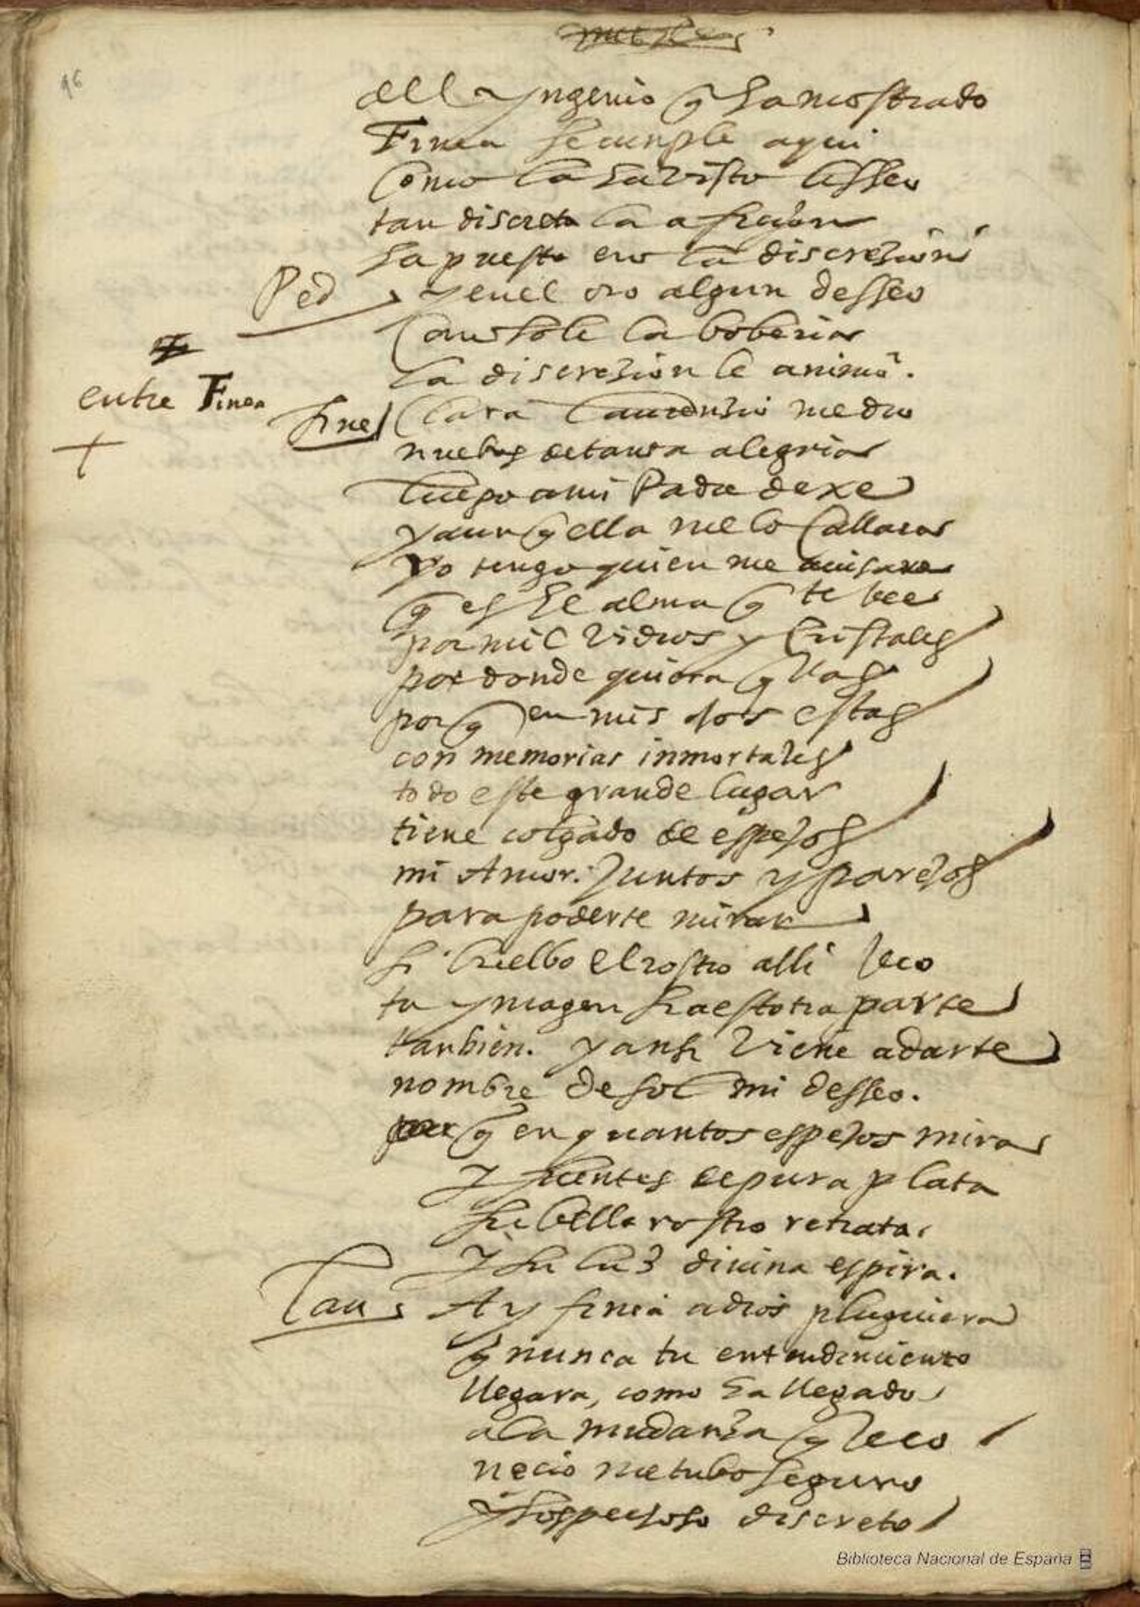 96
del yngenio q ha mostrado
Finea se cunple aqui
como la ha visto liseo
tan discreta la afizion
ha puesto en la discrezion
Ped y en el oro algun desseo
cansole la boberia
la discrezion le animo.
entre Finea
fine clara laurenzio me dio
nuebas de tanta alegria
luego a mi Padre dexe
y aun q ella me lo callara
yo tengo quien me auisara
q es el alma q te bee
por mil vidros y cristales
por donde quiera q vas
porq en mis ojos estas
con memorias inmortales
todo este grande lugar
tiene colgado de espejos
mi Amor. Juntos y parejos
para poderte mirar
si buelbo el rostro alli veo
tu ymagen si a estotra parte
tanbien. y ansi viene a darte
nombre de sol mi desseo.
q en quantos espejos mira
y fuentes de pura plata
su bello rostro retrata.
y su luz diuina espira.
Lau Ay finea a dios pluguiera
q nunca tu entendimiento
llegara, como ha llegado
a la mudanza q veo
necio me tubo seguro
y sospechoso discreto
Biblioteca Nacional de España